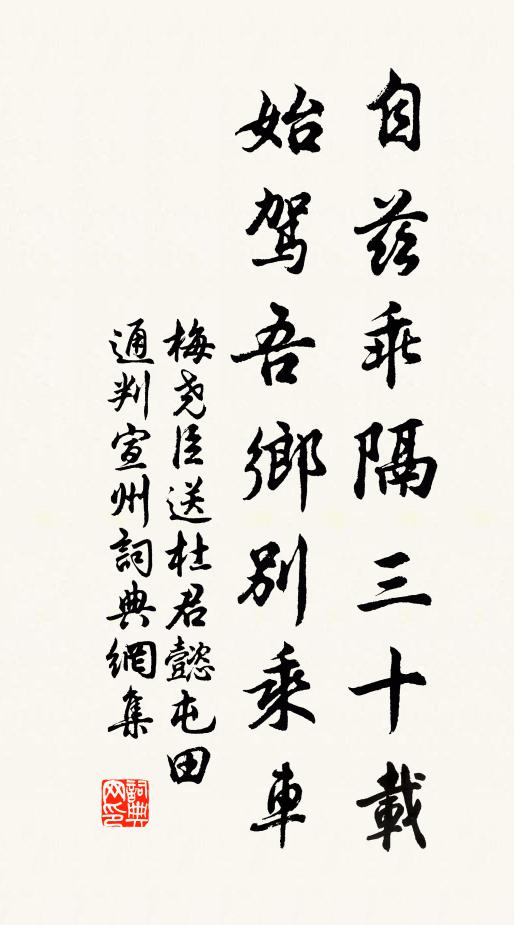 自茲乖隔三十載
始駕吾鄉別乘車
梅堯臣送杜君懿屯田
通判宣州詞典網集
詞典
网印